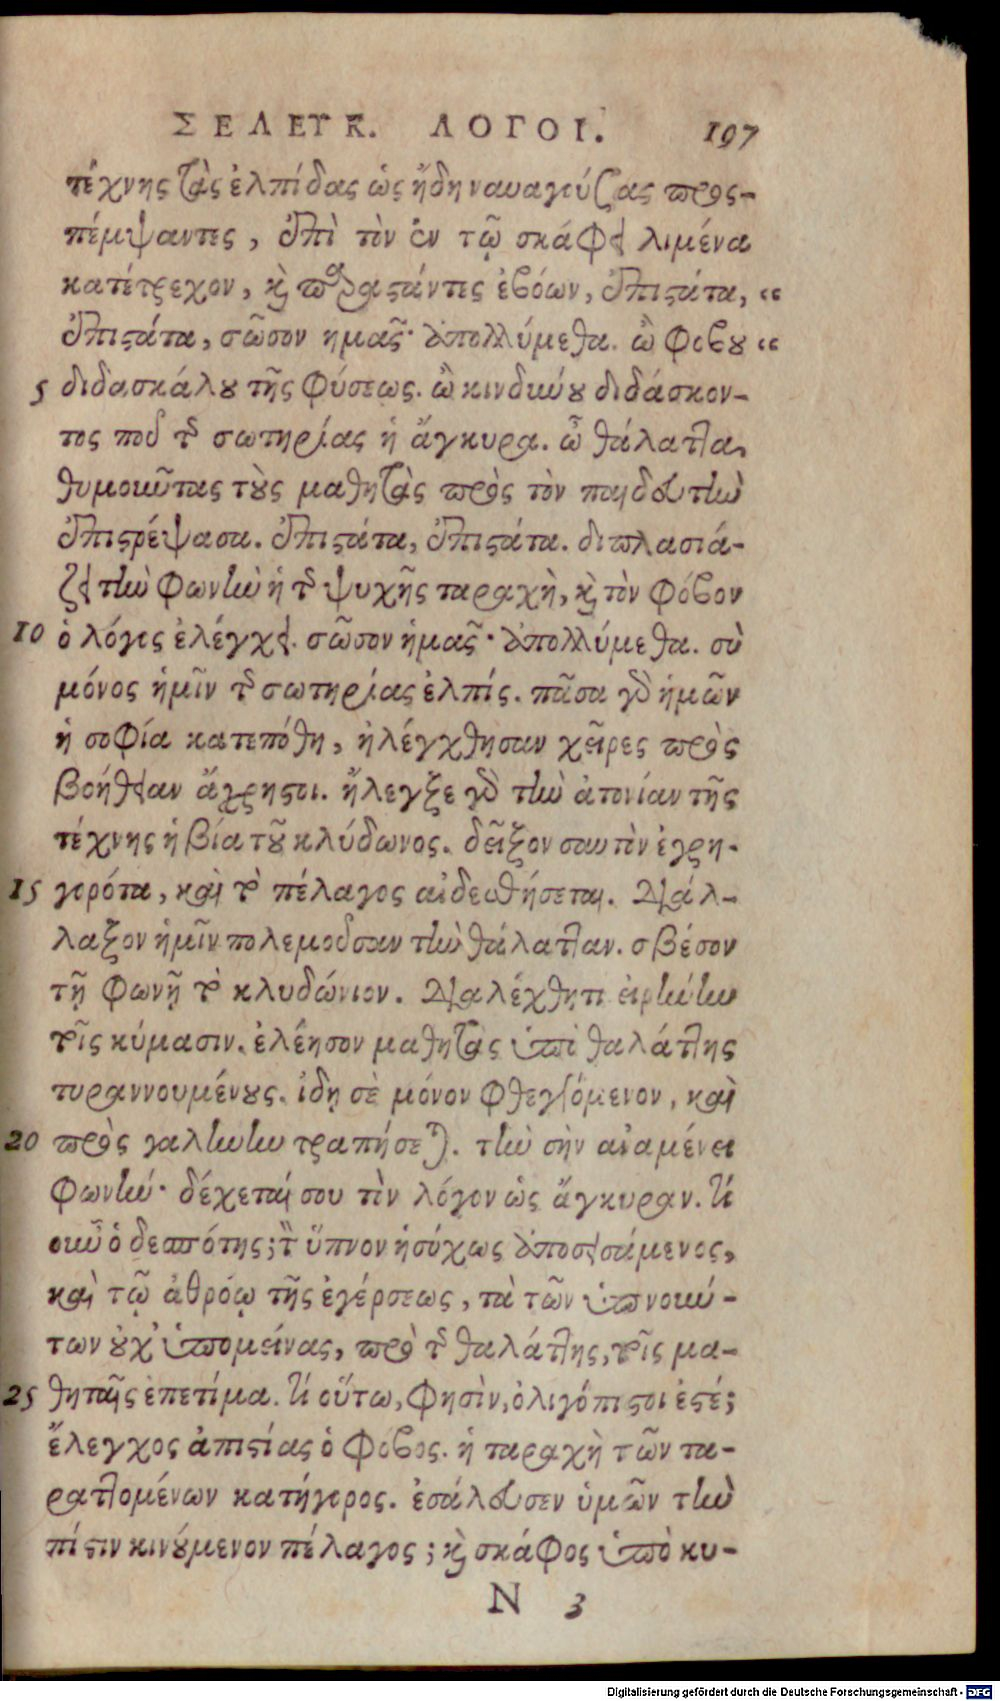 ΣΕΛΕΥΚ. ΛΟΓΟΙ. 197
τέχνης τὰς ἐλπίδας ὡς ἤδη ναυαγούσας προς-
πέμψαντες, ἐπὶ τὸν ἐν τῷ σκάφει λιμένα
κατέτρεχον, καὶ παραστάντες ἐβόων, ἐπιστάτα, "
ἐπιστάτα, σῶσον ημᾶς· ἀπολλύμεθα. ὢ φόβου "
5 διδασκάλου τῆς φύσεως. ὢ κινδύνου διδάσκον-
τος ποῦ τῆς σωτηρίας ἡ ἄγκυρα. ὦ θάλαττα,
θυμοιῶτας τοὺς μαθητὰς πρὸς τὸν παιδευτὴν
ἐπιστρέψασα. ἐπιστάτα, ἐπιστάτα. διπλασιά-
ζει τὴν φωνὴν ἡ τῆς ψυχῆς ταραχὴ, καὶ τὸν φόβον
10 ὁ λόγος ἐλέγχει. σῶσον ἡμᾶς· ἀπολλύμεθα. σὺ
μόνος ἡμῖν τῆς σωτηρίας ἐλπίς. πᾶσα γὰρ ἡμῶν
ἡ σοφία κατεπόθη, ἠλέγχθησαν χεῖρες πρὸς
βοήθειαν ἄχρηστοι. ἤλεγξε γὰρ τὴν ἀτονίαν τῆς
τέχνης ἡ βία τοῦ κλύδωνος. δεῖξον σαυτὸν ἐγρη-
15 γορότα, καὶ τὸ πέλαγος αἰδεσθήσεται. διάλ-
λαξον ἡμῖν πολεμοῦσαν τὴν θάλατταν. σβέσον
τῇ φωνῇ τὸ κλυδώνιον. διαλέχθητι εἰρήνην
τοῖς κύμασιν. ἐλέησον μαθητὰς ὑπὸ θαλάττης
τυραννουμένους. ἴδῃ σὲ μόνον φθεγγόμενον, καὶ
20 πρὸς γαλήνην τραπήσεται. τὴν σὴν ἀναμένει
φωνήν· δέχεταί σου τὸν λόγον ὡς ἄγκυραν. τί
οὖν ὁ δεσπότης; τὸν ὕπνον ἡσύχως ἀποσεισάμενος,
καὶ τῷ ἀθρόῳ τῆς ἐγέρσεως, τὰ τῶν ὑπνούν-
των οὐχ' ὑπομείνας, πρὸ τῆς θαλάττης, τοῖς μα-
25 θηταῖς ἐπετίμα. τί οὕτω, φησὶν, ὀλιγόπιστοι ἐστέ;
ἔλεγχος ἀπιστίας ὁ φόβος. ἡ ταραχὴ τῶν τα-
ραττομένων κατήγορος. ἐσάλευσεν ὑμῶν τὴν
πίστιν κινούμενον πέλαγος; καὶ σκάφος ὑπὸ κυ-
N 3
Digitalisierung gefördert durch die Deutsche Forschungsgemeinschaft - DFG